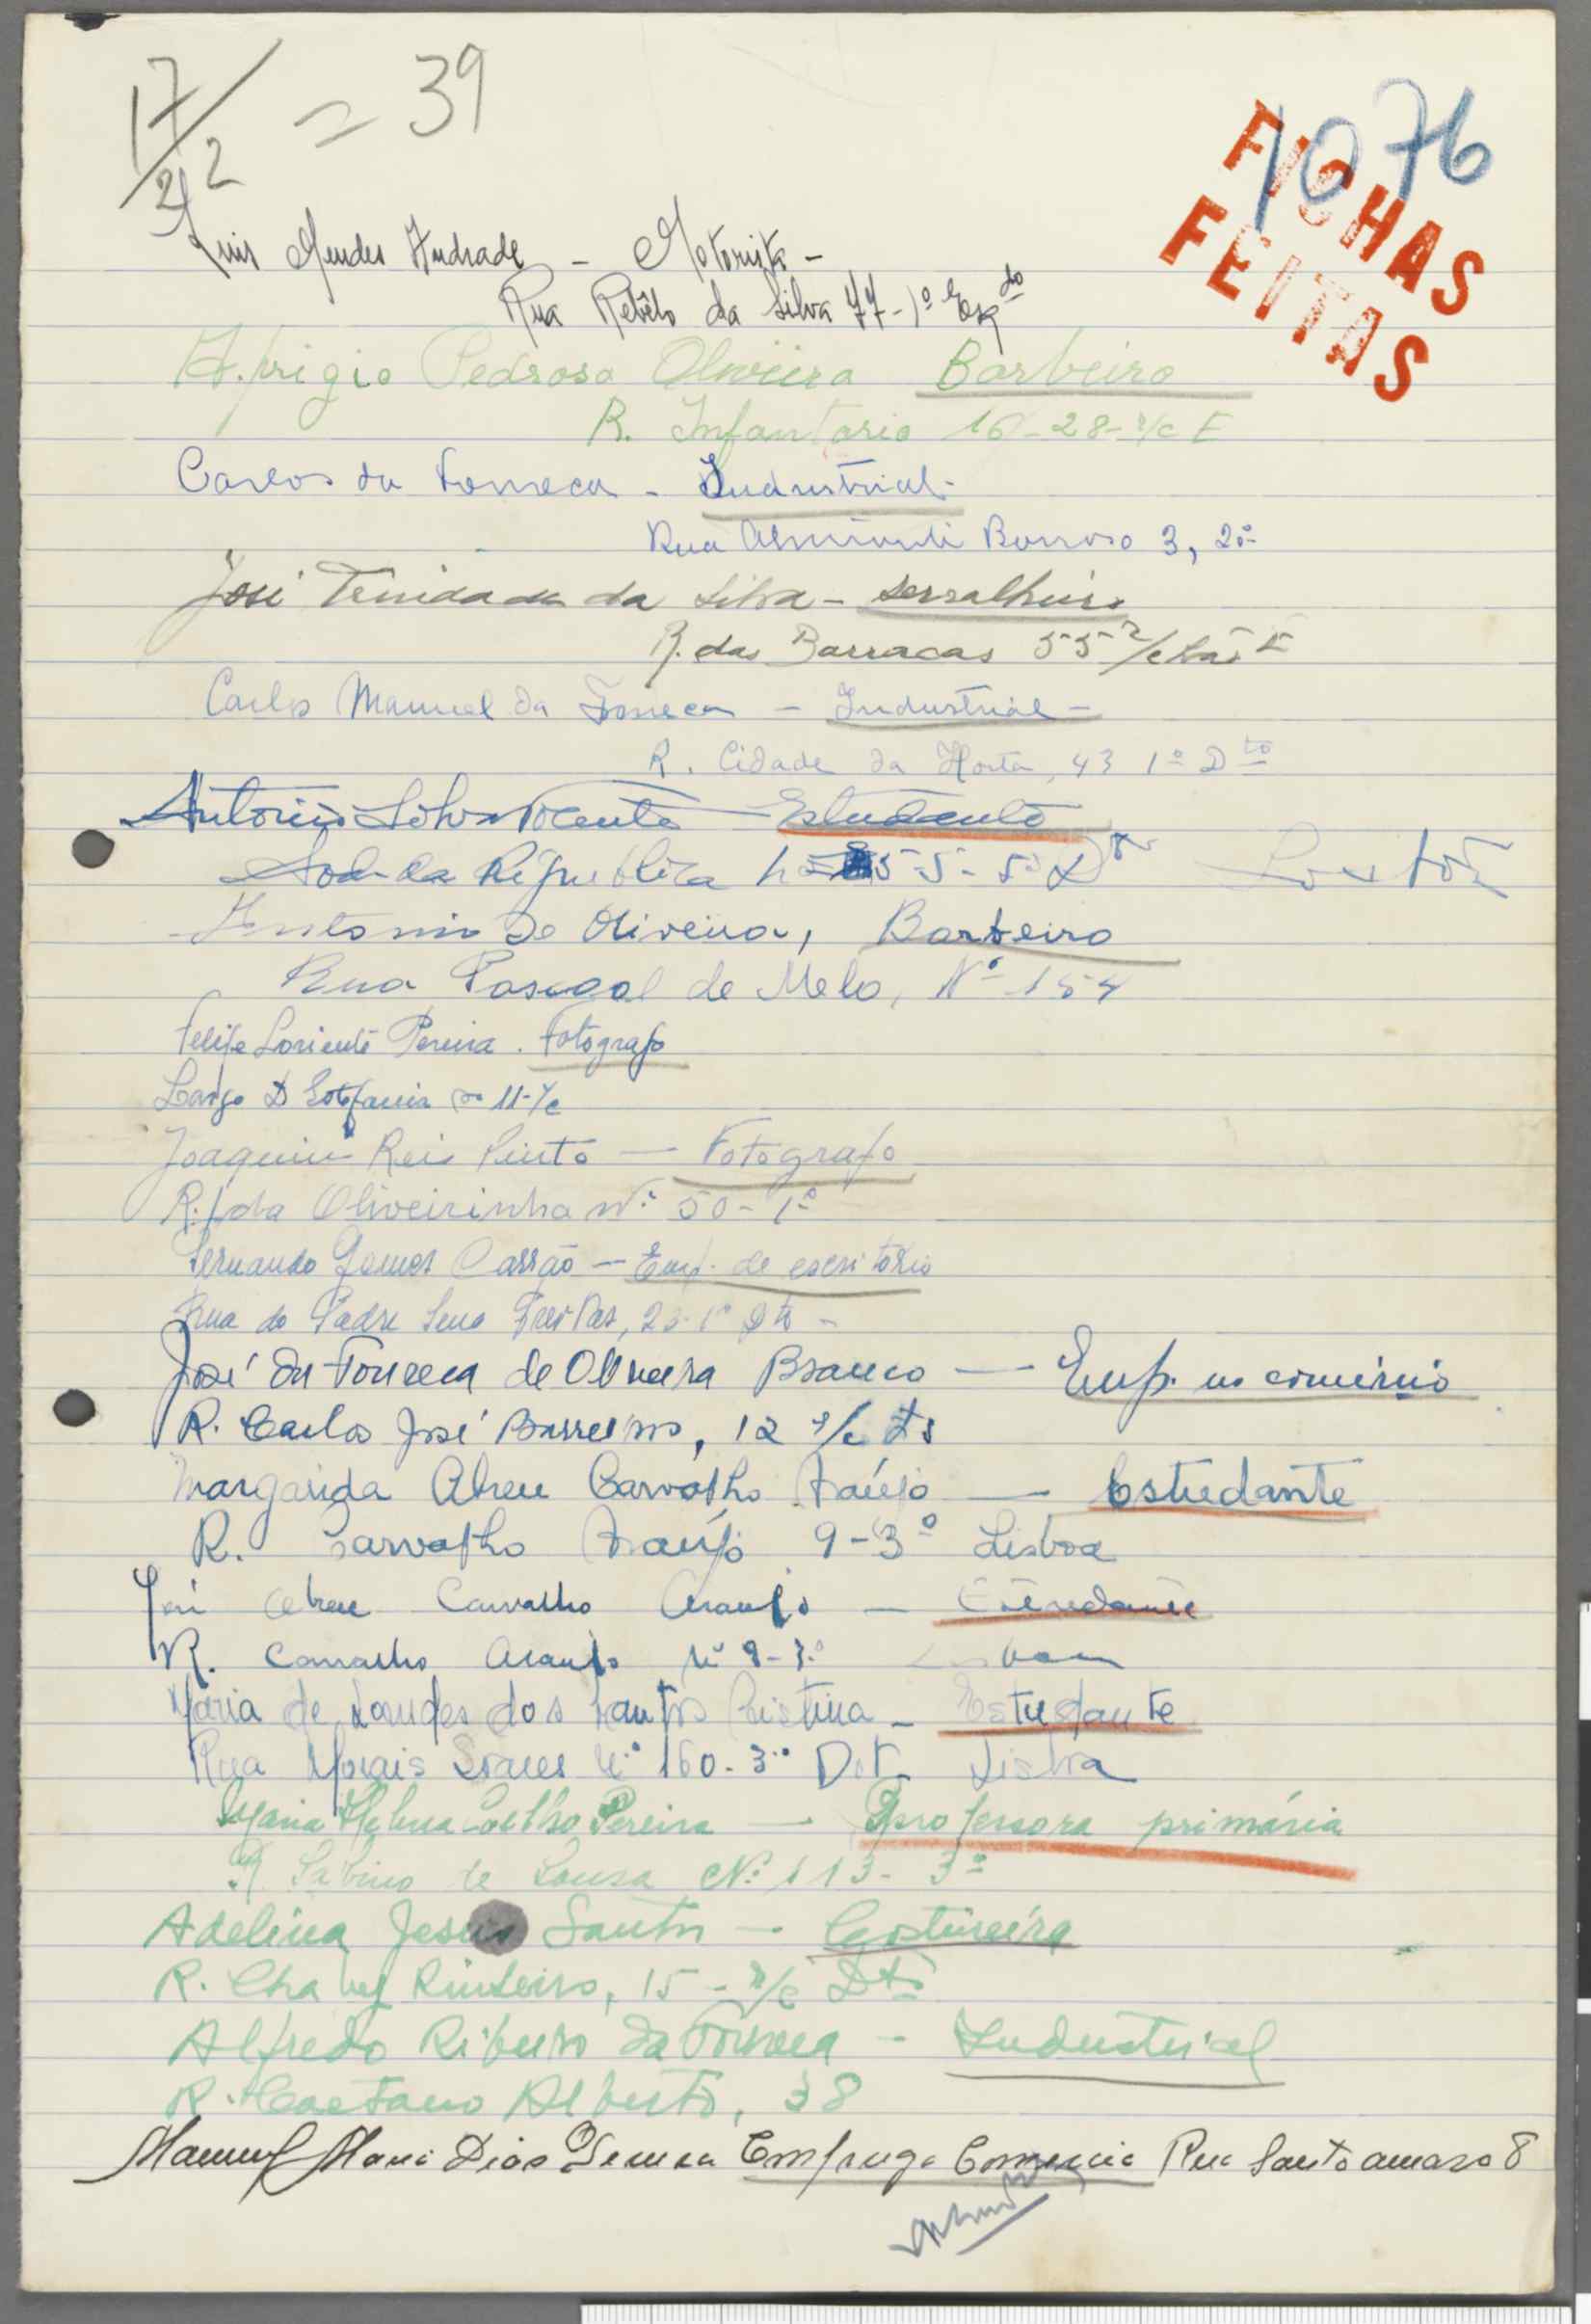 17/22 = 39
1076
FICHAS
FEITAS
Luis Mendes Andrade - Motorista -
Rua Rebêlo da Silva 77-1º Esqdo
Afrigio Pedroso Oliveira Barbeiro
R. Infantaria 16-28-r/c E
Carlos da Fonseca - Industrial-
Rua Almirante Barroso 3, 2º
José Trindade da Silva - serralheiro
R. das Barracas 55 r/chão E
Carlos Manuel da Fonseca - Industrial -
R. Cidade da Horta, 43 1º Dto
António Silva Vicente Estudante
da República 5-5º D
Antonio de Oliveira, Barbeiro
Rua Pascoal de Melo, Nº 154
Felipe Loriente Pereira. Fotografo
Largo D Estefania 11-r/c
Joaquim Reis Pinto — Fotografo
R. da Oliveirinha nº 50-1º
Fernando Gomes Carrão — Emp. de escritório
Rua do Padre Sena Freitas, 23-1º Dto -
José da Fonseca de Oliveira Branco — Emp. no comércio
R. Carlos José Barreiros, 12 r/c
Margarida Abreu Carvalho Araújo — Estudante
R. Carvalho Araújo 9-3º Lisboa
José Abreu Carvalho Araujo — Estudante
R. Carvalho Araujo nº 9-3º Lisboa
Maria de Lourdes dos Santos Cristina - Estudante
Rua Morais Soares nº 160-3º Dt Lisboa
Maria Helena Coelho Pereira — Professora primária
R. Sabino de Sousa Nº 113-3º
Adelina Jesus Santos — Costureira
R. Chaby Pinheiro, 15 - r/c Dto
Alfredo Ribeiro da Fonseca - Industrial
R. Caetano Alberto, 38
Manuel Maria Dias Rua Santo amaro 8